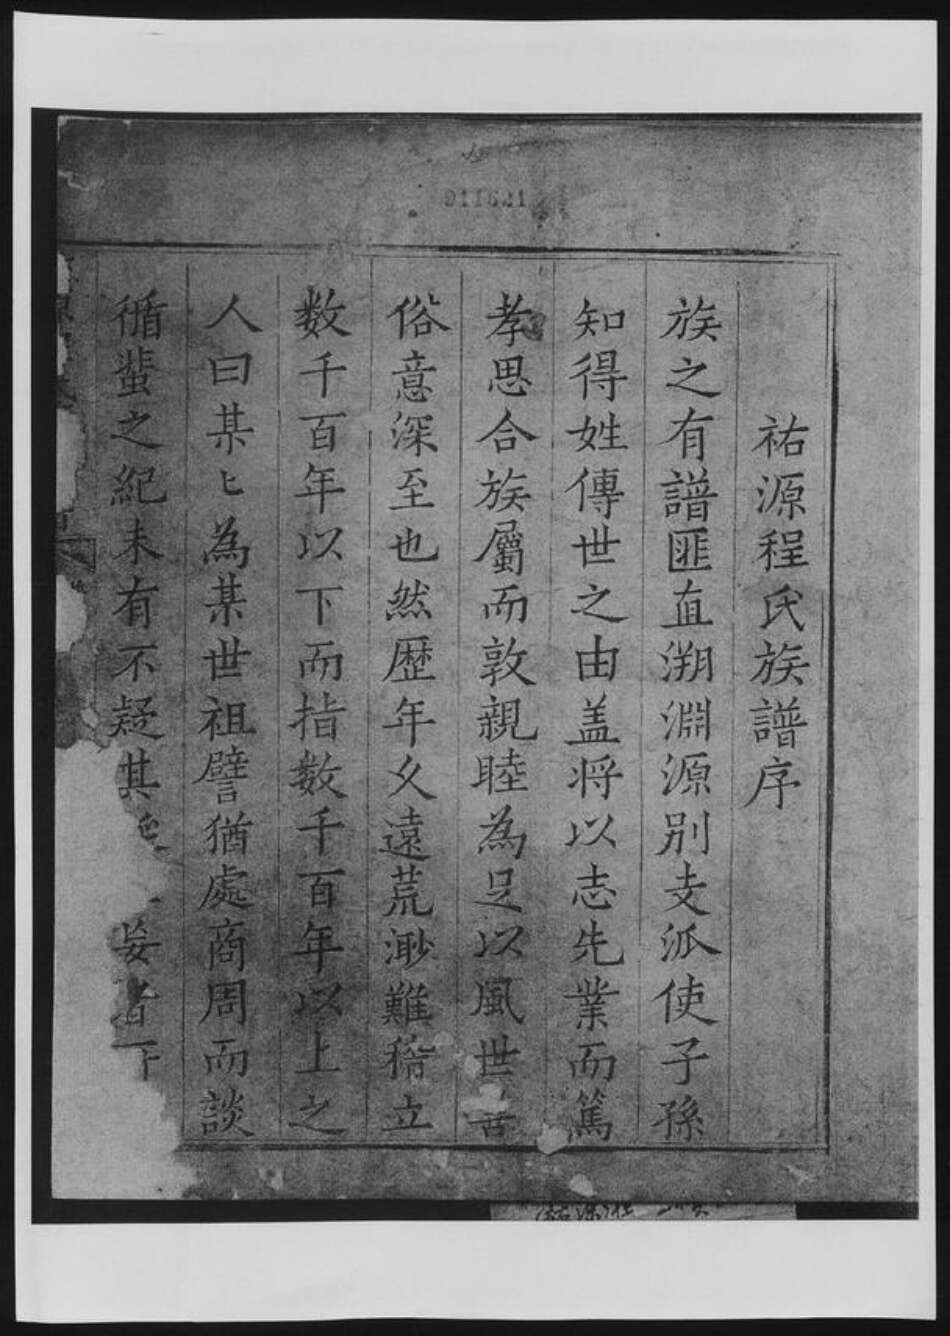 祐源程氏族譜序
族之有譜匪直溯淵源别支派使子孫
知得姓傳世之由盖将以志先業而篤
孝思合族屬而敦親睦為足以風世善
俗意深至也然歴年久遠荒渺難稽立
数千百年以下而指数千百年以上之
人曰某〻為某世祖譬猶處商周而談
循蜚之紀未有不疑其 妄者
011621